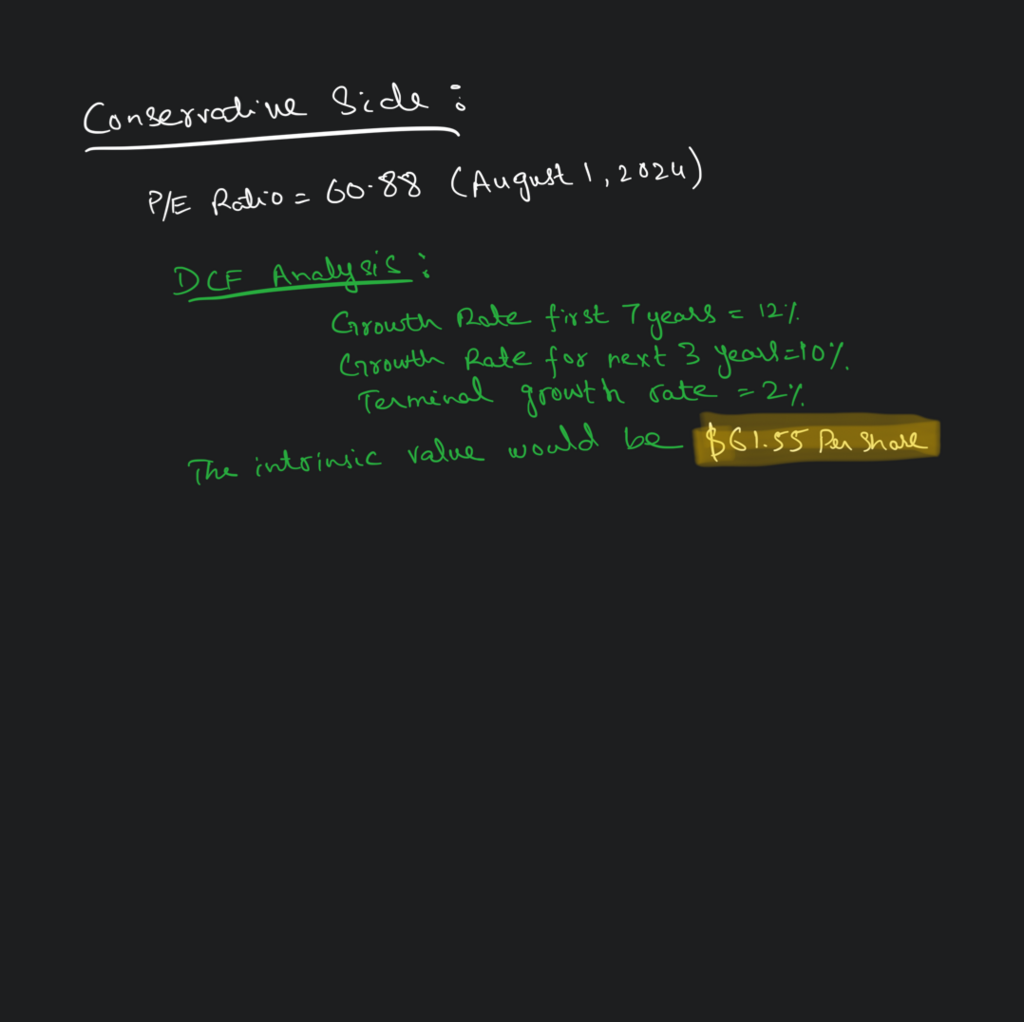 Conservative Side :
P/E Ratio = 60.88 (August 1, 2024)
DCF Analysis :
Growth Rate first 7 years = 12%
Growth Rate for next 3 years = 10%.
Terminal growth rate = 2%
The intrinsic value would be $61.55 Per Share